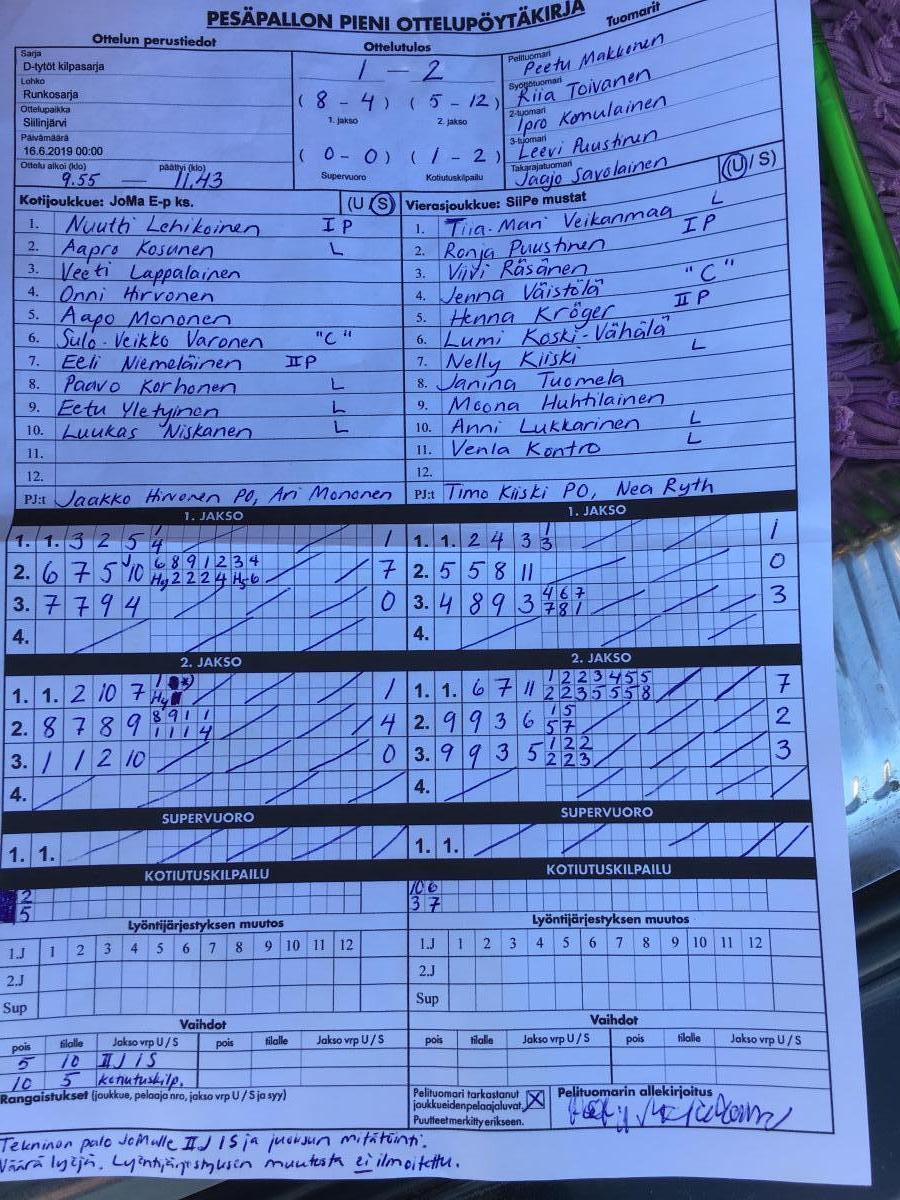 PESÄPALLON PIENI OTTELUPÖYTÄKIRJA
Ottelun perustiedot
Ottelutulos
Tuomarit
Sarja
D-tytöt kilpasarja
Lohko
Runkosarja
Ottelupaikka
Siilinjärvi
Päivämäärä
16.6.2019 00:00
Ottelu alkoi (klo) päättyi (klo)
9.55 — 11.43
1 – 2
( 8 - 4 ) ( 5 - 12 )
1. jakso 2. jakso
( 0 - 0 ) ( 1 - 2 )
Supervuoro Kotiutuskilpailu
Pelituomari
Peetu Makkonen
Syöttötuomari
Riia Toivanen
2-tuomari
Ipro Komulainen
3-tuomari
Leevi Puustinen
Takarajatuomari
Jaajo Savolainen
Kotijoukkue: JoMa E-p ks. (U S)
1. Nuutti Lehikoinen I P
2. Aapro Kosunen L
3. Veeti Lappalainen
4. Onni Hirvonen
5. Aapo Mononen
6. Sulo-Veikko Varonen "C"
7. Eeli Niemeläinen II P
8. Paavo Korhonen L
9. Eetu Yletyinen L
10. Luukas Niskanen L
11.
12.
PJ:t Jaakko Hirvonen PO, Ari Mononen
Vierasjoukkue: SiiPe mustat (U / S)
1. Tiia-Mari Veikanmaa L
2. Ronja Puustinen I P
3. Viivi Räsänen
4. Jenna Väistölä "C"
5. Henna Kröger II P
6. Lumi Koski-Vähälä
7. Nelly Kiiski L
8. Janina Tuomela
9. Moona Huhtilainen
10. Anni Lukkarinen L
11. Venla Kontro L
12.
PJ:t Timo Kiiski PO, Nea Ryth
1. JAKSO
1. 1. 3 2 5 1
4 1
2. 6 7 5 10 6 8 9 1 2 3 4
Hy 2 2 2 4 H5 6 7
3. 7 7 9 4 0
4.
1. JAKSO
1. 1. 2 4 3 1
3 1
2. 5 5 8 11 0
3. 4 8 9 3 4 6 7
7 8 1 3
4.
2. JAKSO
1. 1. 2 10 7 1 *)
Hy 1
2. 8 7 8 9 8 9 1 1
1 1 1 4 4
3. 1 1 2 10 0
4.
2. JAKSO
1. 1. 6 7 11 1 2 2 3 4 5 5
2 2 3 5 5 5 8 7
2. 9 9 3 6 1 5
5 7 2
3. 9 9 3 5 1 2 2
2 2 3 3
4.
SUPERVUORO
1. 1.
SUPERVUORO
1. 1.
KOTIUTUSKILPAILU
2
5
KOTIUTUSKILPAILU
10 6
3 7
Lyöntijärjestyksen muutos
1.J 1 2 3 4 5 6 7 8 9 10 11 12
2.J
Sup
Lyöntijärjestyksen muutos
1.J 1 2 3 4 5 6 7 8 9 10 11 12
2.J
Sup
Vaihdot
pois tilalle Jakso vrp U / S pois tilalle Jakso vrp U / S
5 10 II J 1 S
10 5 kotiutuskilp.
Vaihdot
pois tilalle Jakso vrp U / S pois tilalle Jakso vrp U / S
Rangaistukset (joukkue, pelaaja nro, jakso vrp U / S ja syy)
Pelituomari tarkastanut
joukkueidenpelaajaluvat, X
Puutteet merkitty erikseen.
Pelituomarin allekirjoitus
Tekninen palo JoMalle II J 1 S ja juoksun mitätöinti.
Väärä lyöjä. Lyöntijärjestyksen muutosta ei ilmoitettu.